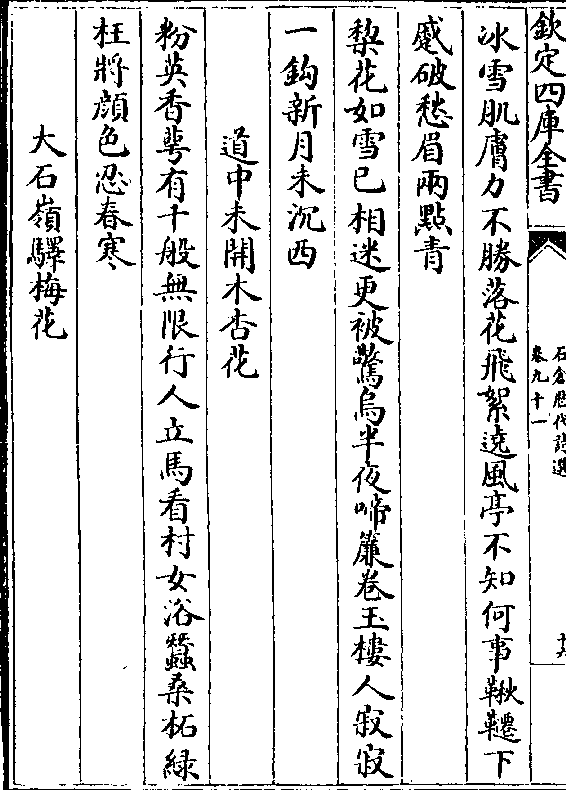 欽定四庫全書
石倉歴代詩選
卷九十一
十六
冰雪肌膚力不勝落花飛絮遶風亭不知何事鞦韆下
蹙破愁眉兩點青
棃花如雪已相迷更被驚烏半夜啼簾卷玉樓人寂寂
一鈎新月未沉西
道中未開木杏花
粉英香萼有千般無限行人立馬看村女浴蠶桑柘緑
枉將顔色忍春寒
大石嶺驛梅花